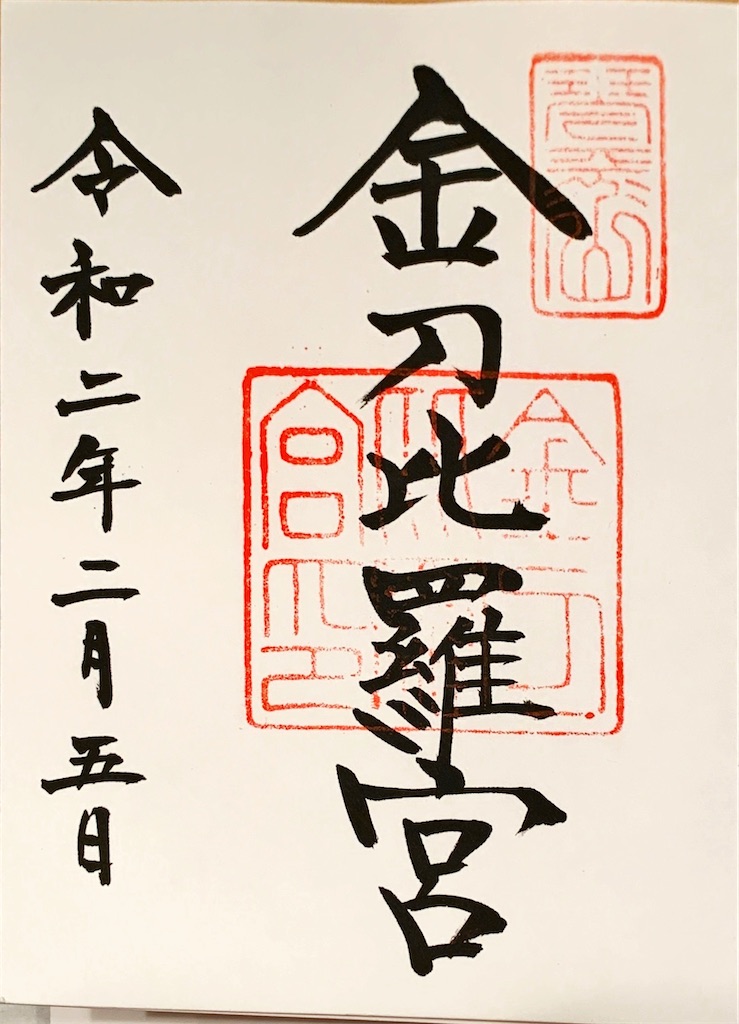 金刀比羅宮
金刀比羅宮印
令和二年二月五日